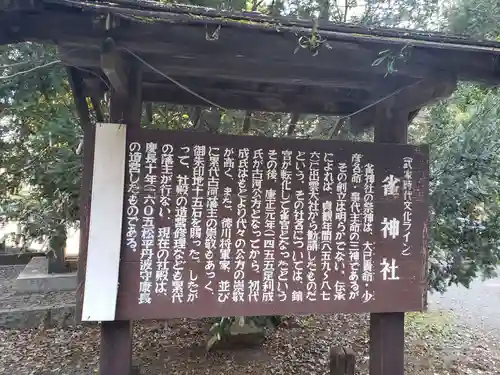 （武家時代文化ライン）
雀神社
雀神社の祭神は、大己貴命・少
彦名命・事代主命の三神であるが
その創立は明らかでない。伝承
によれば、貞観年間八五九～八七
六に出雲大社から勧請したものだ
という。その社名については、鎮
宮が転化して雀宮になったという
その後、康正元年一四五五足利成
氏が古河公方となってから、初代
成氏はもとより代々の公方の崇敬
が高く、また、徳川将軍家、並び
に累代古河藩主の崇敬もあつく、
御朱印地十五石を賜った。したが
って、社殿の造営修理なども累代
の藩主が行ない、現在の社殿は、
慶長十年一六〇五松平丹波守康長
の造営したものである。